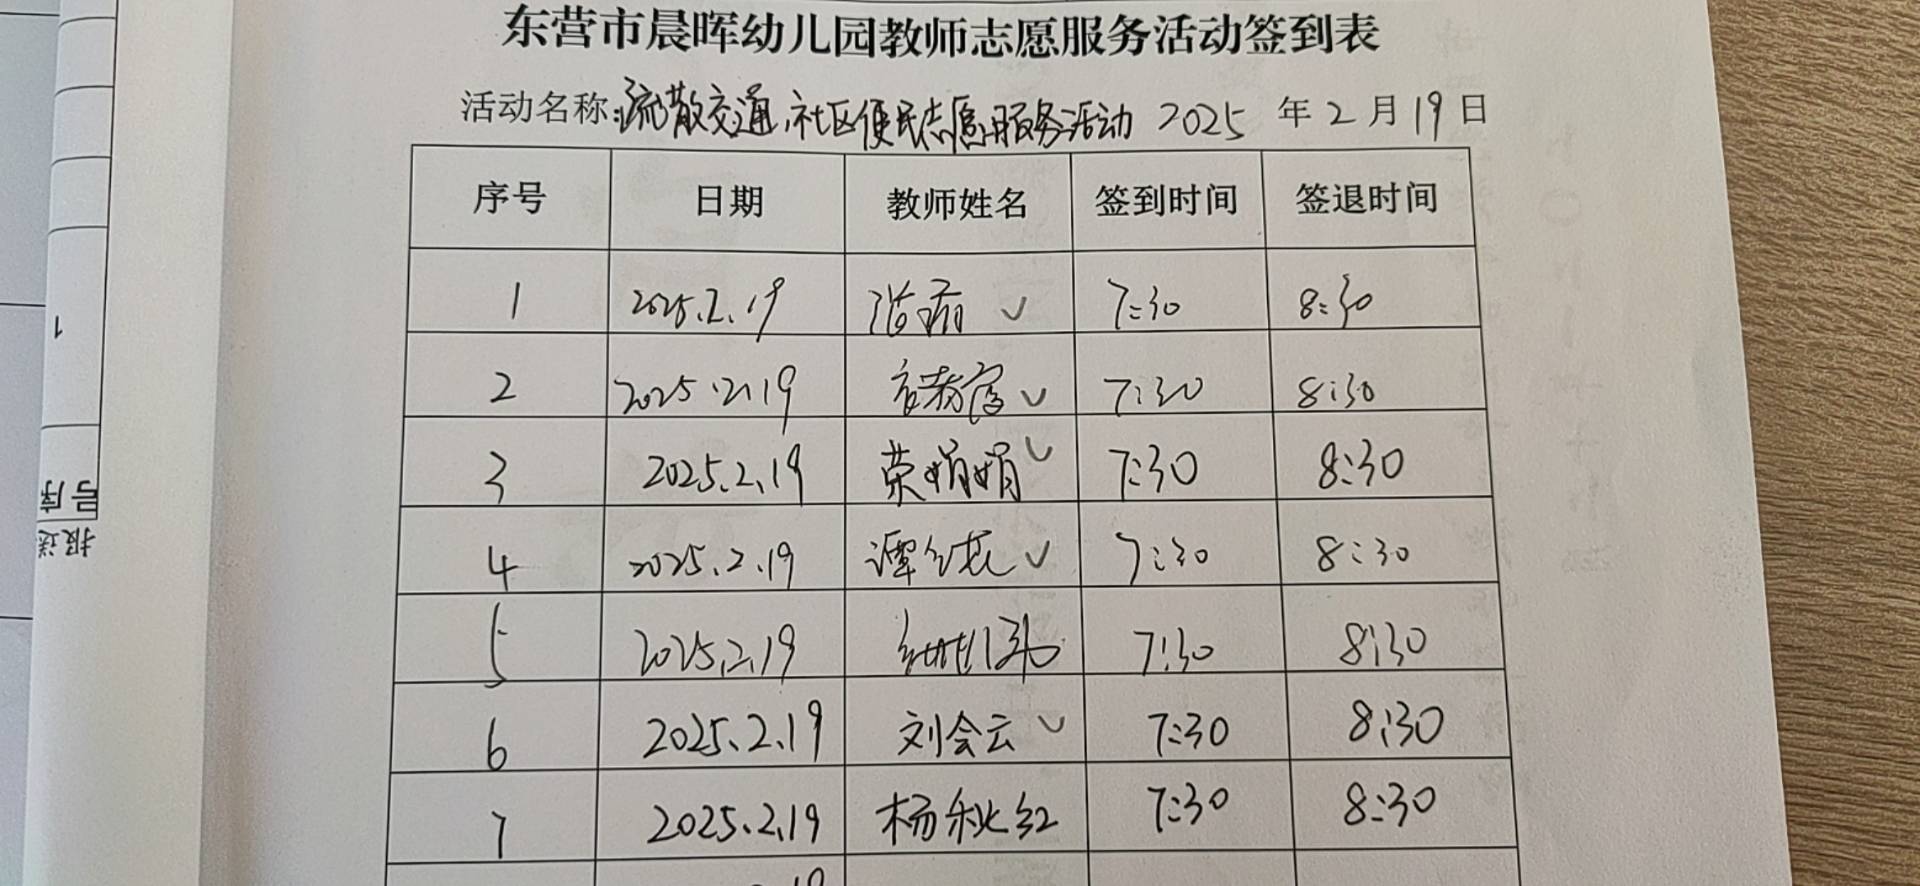 东营市晨晖幼儿园教师志愿服务活动签到表
活动名称:疏散交通、社区便民志愿服务活动 2025 年 2 月 19 日
序号 日期 教师姓名 签到时间 签退时间
1 2025.2.19 ✓ 7:30 8:30
2 2025.2.19 ✓ 7:30 8:30
3 2025.2.19 荣娟娟 ✓ 7:30 8:30
4 2025.2.19 谭 ✓ 7:30 8:30
5 2025.2.19 7:30 8:30
6 2025.2.19 刘会云 ✓ 7:30 8:30
7 2025.2.19 杨秋红 7:30 8:30
1
序号
报送